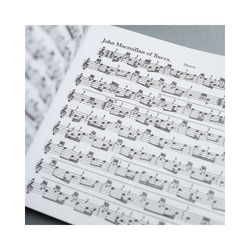 John Macmillan of Barra.
March